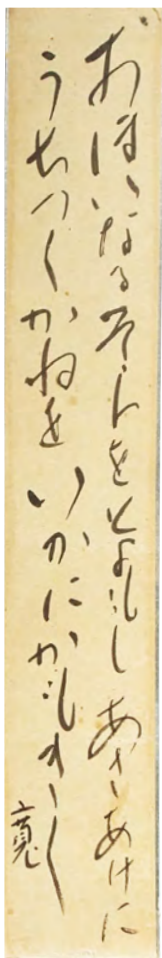 おほいなるそらをとよもしあさあけに
うちつくかねをいかにかもきく
寛